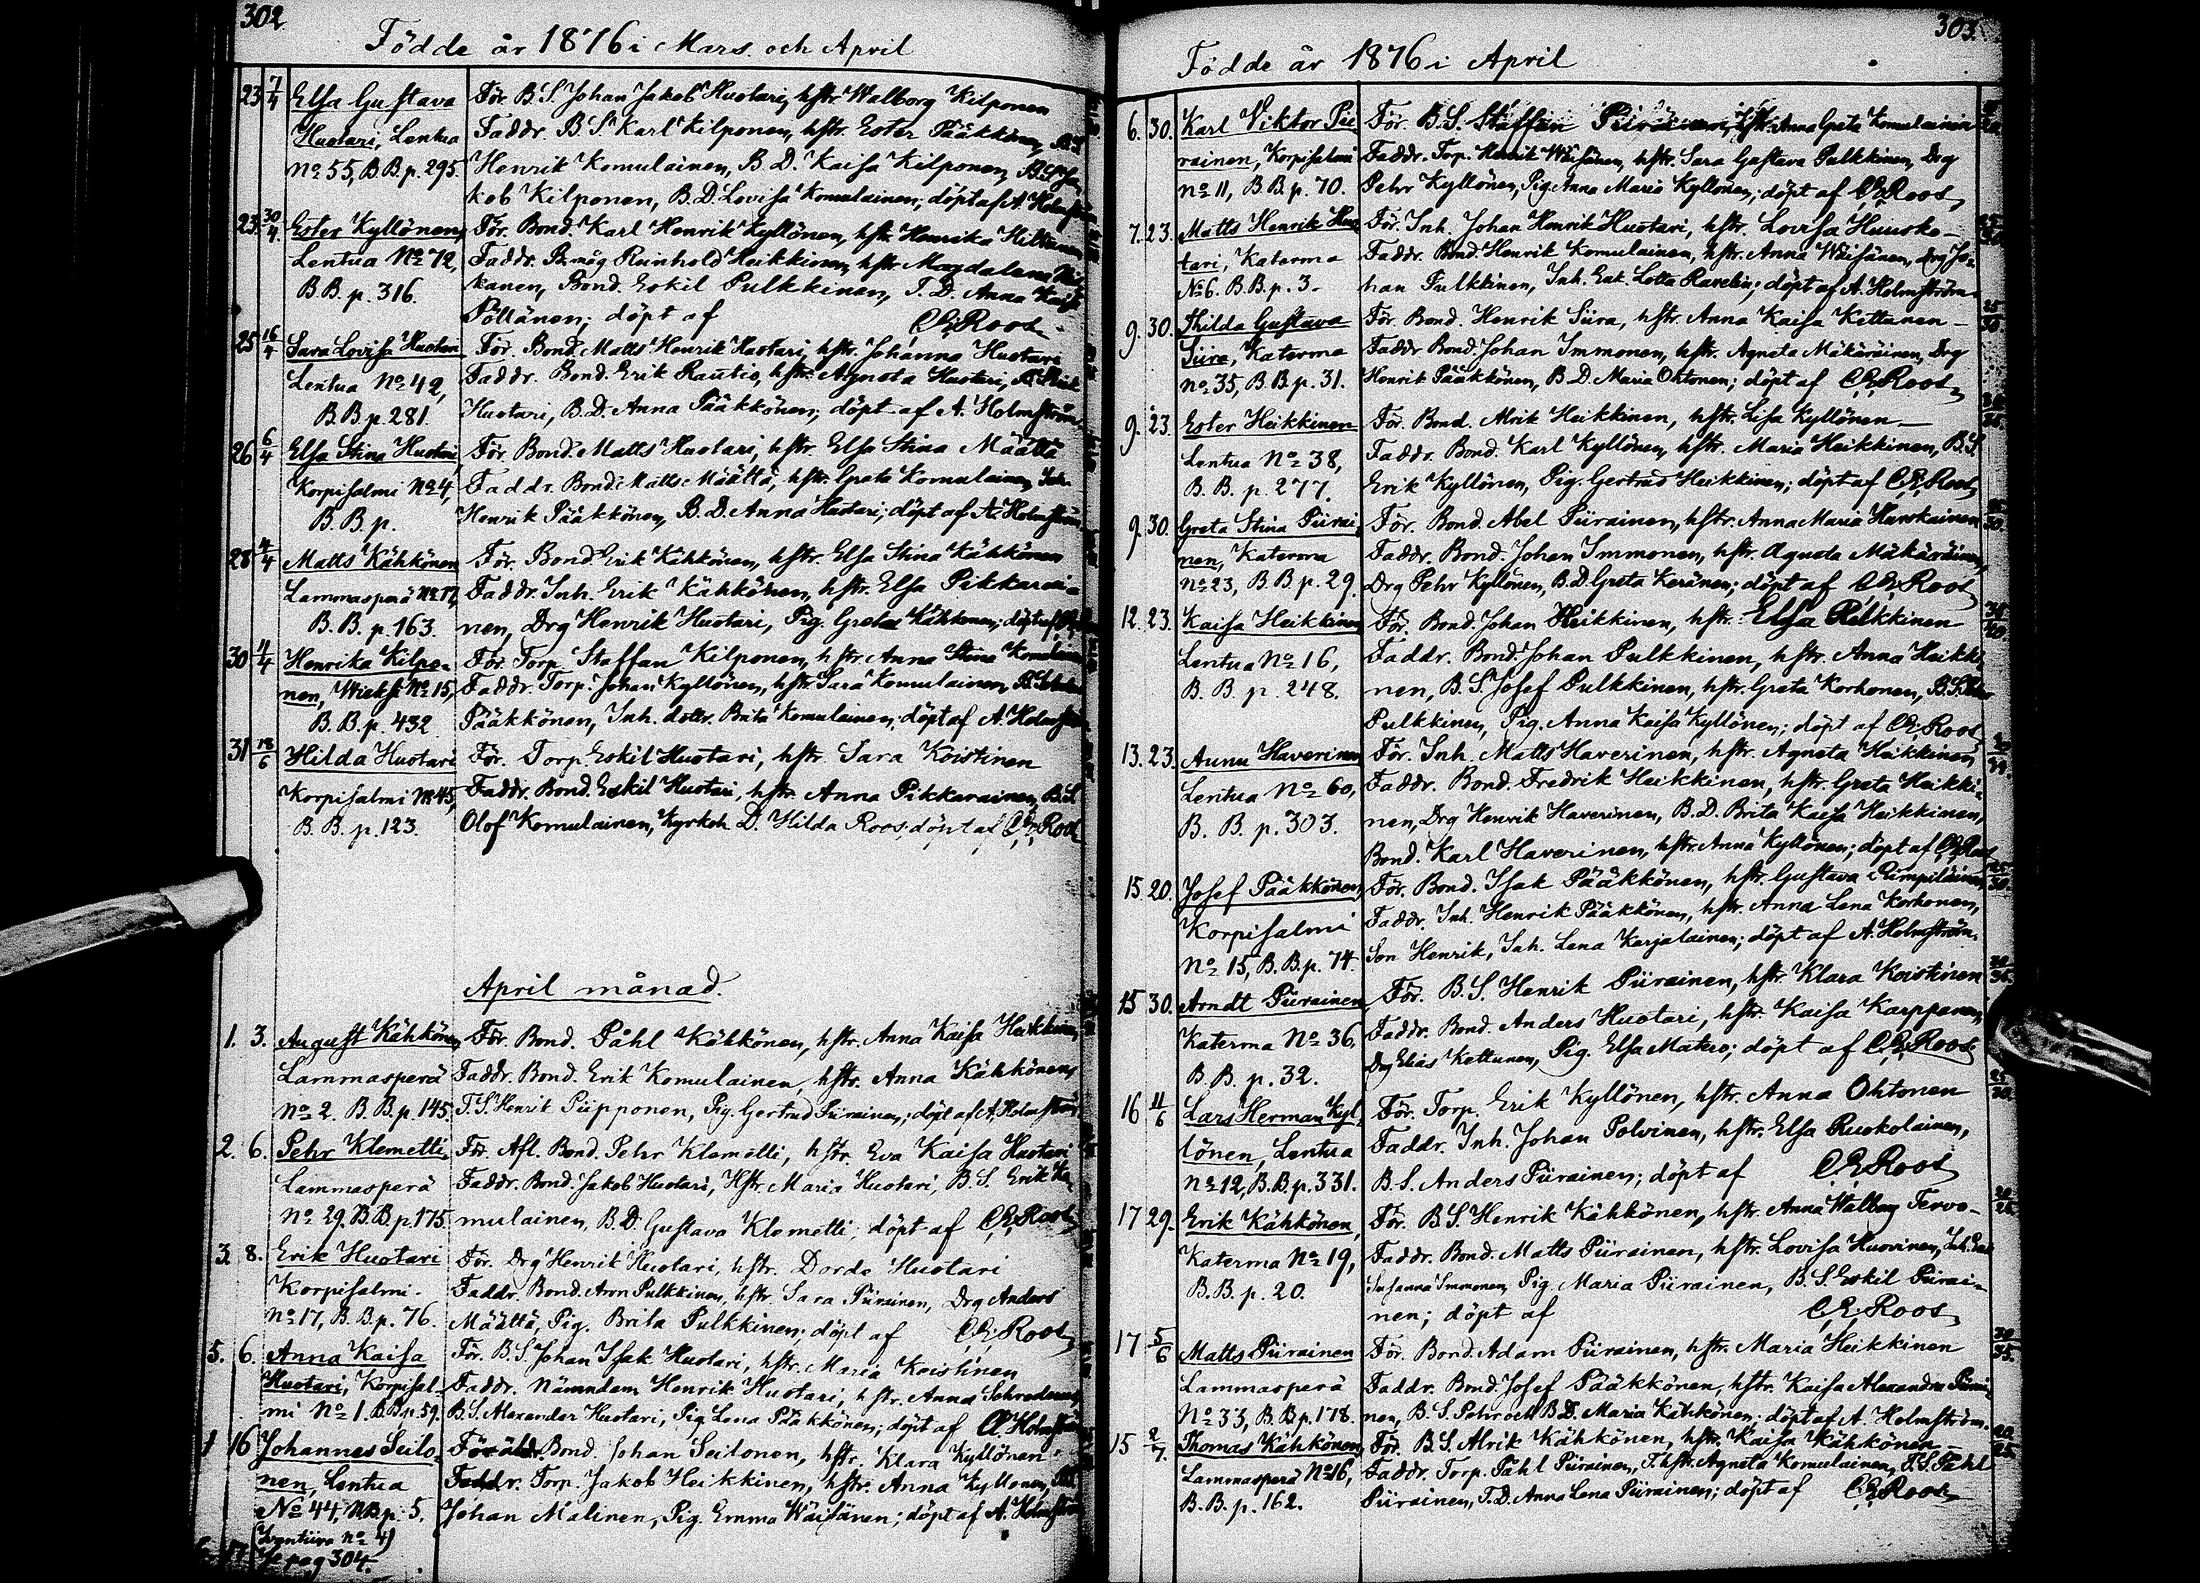 302
Födde år 1876 i Mars och April
23 7/4 Elsa Gustava För. B.S. Johan Jakob Huotari, hstr Walborg Kilponen
Huotari, Lentua Faddr. B.S. Karl Kilponen, hstr. Ester Pääkkönen,
No 55, B.B.p. 295. Henrik Komulainen, B.D. Kaisa Kilponen,
kob Kilponen, B.D. Lovisa Komulainen; döpt af A. Holmström
23. 30/4. Ester Kyllönen, För. Bond. Karl Henrik Kyllönen, hstr. Henrika
Lentua No 72, Faddr. Reinhold Heikkinen, hstr Magdalena
B.B. p. 316. kanen, Bond. Eskil Pulkkinen, T.D. Anna Kaisa
Pöllänen; döpt af C.E. Roos
25 16/4 Sara Lovisa Huotari För. Bond. Matts Henrik Huotari, hstr. Johanna Huotari
Lentua No 42, Faddr. Bond. Erik Rautio, hstr. Agneta Huotari,
B.B.p. 281. Huotari, B.D. Anna Pääkkönen; döpt af A. Holmström
26 6/4 Elsa Stina Huotari, För. Bond. Matts Huotari, hstr. Elsa Stina Määttä
Korpisalmi No 4, Faddr. Bond. Matts Määttä, hstr. Greta Komulainen,
B.B.p. Henrik Pääkkönen, B.D. Anna Huotari; döpt af A. Holmström
28 4/4 Matts Kähkönen För. Bond. Erik Kähkönen, hstr. Elsa Stina Kähkönen
Lammasperä No 17, Faddr. Inh. Erik Kähkönen, hstr. Elsa Pikkarai-
B.B. p. 163. nen, Drg Henrik Huotari, Pig. Greta Kähkönen; döpt af
30 4/4 Henrika Kilpo- För. Torp. Staffan Kilponen, hstr Anna Stina Komulainen
nen, Wieksi No 15, Faddr. Torp. Johan Kyllönen, hstr. Sara Komulainen,
B.B. p. 432 Pääkkönen, Inh. dottr. Brita Komulainen; döpt af A. Holmström
31 18/6 Hilda Huotari För. Torp. Eskil Huotari, hstr. Sara Koistinen
Korpisalmi No 45, Faddr. Bond. Eskil Huotari, hstr. Anna Pikkarainen, B.S.
B.B. p. 123. Olof Komulainen, Kyrkoh. D. Hilda Roos; döpt af C.E. Roos
April månad.
1. 3. August Kähkönen, För. Bond. Påhl Kähkönen, hstr. Anna Kaisa Heikkinen,
Lammasperä Faddr. Bond. Erik Komulainen, hstr. Anna Kähkönen,
No 2. B.B.p. 145. T.S. Henrik Piipponen, Pig. Gertrud Piirainen; döpt af A. Holmström
2. 6. Pehr Klemetti, För. Afl. Bond. Pehr Klemetti, hstr. Eva Kaisa Huotari
Lammasperä Faddr. Bond. Jakob Huotari, Hstr. Maria Huotari, B.S. Erik Ko-
No 29. B.B.p. 175. mulainen, B.D. Gustava Klemetti; döpt af C.E. Roos
3. 8. Erik Huotari För. Drg Henrik Huotari, hstr. Dorde Huotari
Korpisalmi. Faddr. Bond. Aron Pulkkinen, hstr. Sara Piirainen, Drg Anders
No 17, B.B.p. 76. Määttä, Pig. Brita Pulkkinen; döpt af C.E. Roos
5. 6. Anna Kaisa För. B.S. Johan Isak Huotari, hstr. Maria Koistinen
Huotari, Korpisal- Faddr. Nämndem. Henrik Huotari, hstr. Anna Schroderus,
mi No 1. B.B.p. 59. B.S. Alexander Huotari, Pig. Lena Pääkkönen; döpt af A. Holmström
1 16 Johannes Seilo- Föräldr. Bond. Johan Seilonen, hstr. Klara Kyllönen
nen, Lentua Faddr. Torp. Jakob Heikkinen, hstr. Anna Kyllönen,
No 44, B.B.p. 5. Johan Malinen, Pig. Emma Wäisänen; döpt af A. Holmström
(Lentiira No 4)
Se pag 304.
303.
Födde år 1876 i April
6. 30. Karl Viktor Pii- För. B.S. Staffan Piirainen, hstr. Anna Greta Komulainen
rainen, Korpisalmi Faddr. Torp. Henrik Wäisänen, hstr. Sara Gustava Pulkkinen, Drg
No 11, B.B.p. 70. Pehr Kyllönen, Pig. Anna Maria Kyllönen; döpt af C.E. Roos
7. 23. Matts Henrik Huo- För. Inh. Johan Henrik Huotari, hstr. Lovisa Huusko
tari, Katerma Faddr. Bond. Henrik Komulainen, hstr. Anna Wäisänen, Drg Jo-
No 6. B.B.p. 3. han Pulkkinen, Inh. Enk. Lotta Ravelin; döpt af A. Holmström
9. 30. Thilda Gustava För. Bond. Henrik Siira, hstr. Anna Kaisa Kettunen
Siira, Katerma Faddr Bond. Johan Immonen, hstr. Agneta Mäkäräinen, Drg
No 35, B.B.p. 31. Henrik Pääkkönen, B.D. Maria Ohtonen; döpt af C.E. Roos
9. 23. Ester Heikkinen För. Bond. Alrik Heikkinen, hstr. Lisa Kyllönen
Lentua No 38, Faddr. Bond. Karl Kyllönen, hstr. Maria Heikkinen, B.S.
B.B. p. 277. Erik Kyllönen, Pig. Gertrud Heikkinen; döpt af C.E. Roos
9. 30. Greta Stina Piirai- För. Bond. Abel Piirainen, hstr. Anna Maria Hanskainen
nen, Katerma Faddr. Bond. Johan Immonen, hstr. Agneta Mäkäräinen,
No 23, B.B.p. 29. Drg Pehr Kyllönen, B.D. Greta Keränen; döpt af C.E. Roos
12. 23. Kaisa Heikkinen För. Bond. Johan Heikkinen, hstr. Elsa Pulkkinen
Lentua No 16, Faddr. Bond. Johan Pulkkinen, hstr. Anna Heikki-
B.B. p. 248. nen, B.S. Josef Pulkkinen, hstr. Greta Korhonen, B.S.
Pulkkinen, Pig. Anna Kaisa Kyllönen; döpt af C.E. Roos
13. 23. Anna Haverinen För. Inh. Matts Haverinen, hstr. Agneta Heikkinen
Lentua No 60, Faddr. Bond. Fredrik Heikkinen, hstr. Greta Heikki-
B.B. p. 303. nen, Drg Henrik Haverinen, B.D. Brita Kaisa Heikkinen,
Bond. Karl Haverinen, hstr. Anna Kyllönen; döpt af C.E. Roos
15 20. Josef Pääkkönen, För. Bond. Isak Pääkkönen, hstr. Gustava Pumpilainen
Korpisalmi Faddr. Inh. Henrik Pääkkönen, hstr. Anna Lena Korhonen,
No 15, B.B.p. 74. Son Henrik, Inh. Lena Karjalainen; döpt af A. Holmström.
15 30. Arndt Piirainen För. B.S. Henrik Piirainen, hstr. Klara Koistinen
Katerma No 36, Faddr. Bond. Anders Huotari, hstr. Kaisa Karppanen,
B.B. p. 32. Drg Elias Kettunen, Pig. Elsa Matero; döpt af C.E. Roos
16 4/6 Lars Herman Kyl- För. Torp. Erik Kyllönen, hstr. Anna Ohtonen
lönen, Lentua Faddr. Inh. Johan Polvinen, hstr. Elsa Ruokolainen,
No 12, B.B.p. 331. B.S. Anders Piirainen; döpt af C.E. Roos
17 29. Erik Kähkönen, För. B.S. Henrik Kähkönen, hstr. Anna Walborg Tervo
Katerma No 19, Faddr. Bond. Matts Piirainen, hstr. Lovisa Huovinen, Inh.
B.B. p. 20. Susanna Immonen, Pig. Maria Piirainen, B.S. Eskil Piirai-
nen; döpt af C.E. Roos
17 5/6 Matts Piirainen För. Bond. Adam Piirainen, hstr. Maria Heikkinen
Lammasperä Faddr. Bond. Josef Pääkkönen, hstr. Kaisa Alexandra Piirai-
No 33, B.B.p. 178. nen, B.S. Pehr och B.D. Maria Kähkönen; döpt af A. Holmström.
15 2/7. Thomas Kähkönen, För. B.S. Alrik Kähkönen, hstr. Kaisa Kähkönen
Lammasperä No 16, Faddr. Torp. Påhl Piirainen, T.hstr. Agneta Komulainen, T.S. Påhl
B.B. p. 162. Piirainen, T.D. Anna Lena Piirainen; döpt af C.E. Roos